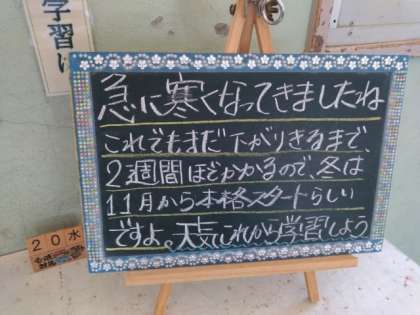 学習は
急に寒くなってきましたね
これでもまだ下がりきるまで、
2週間ほどかかるので、冬は
11月から本格スタートらしい
ですよ。天気これから学習しよう
20水